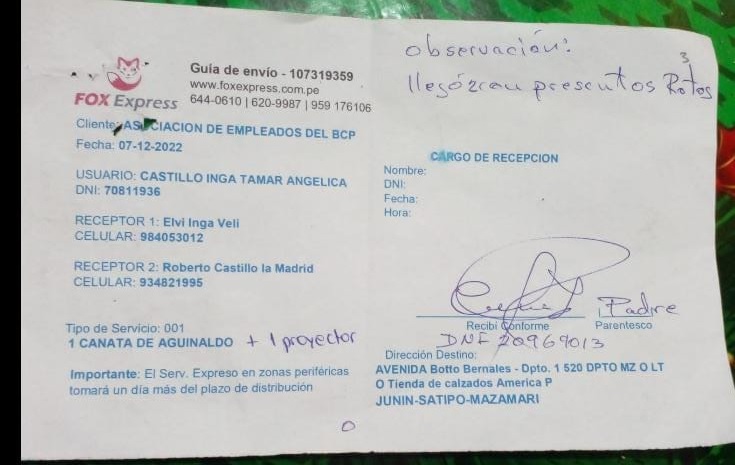 observación:
3
Rotos
FOX Express
Guia de envío - 107319359
www.foxexpress.com.pe
644-0610 | 620-9987 | 959 176106
Cliente: ASOCIACION DE EMPLEADOS DEL BCP
Fecha: 07-12-2022
USUARIO: CASTILLO INGA TAMAR ANGELICA
DNI: 70811936
RECEPTOR 1: Elvi Inga Veli
CELULAR: 984053012
RECEPTOR 2: Roberto Castillo la Madrid
CELULAR: 934821995
Tipo de Servicio: 001
1 CANATA DE AGUINALDO + 1 proyector
Importante: El Serv. Expreso en zonas periféricas
tomará un día más del plazo de distribución
CARGO DE RECEPCION
Nombre:
DNI:
Fecha:
Hora:
Padre
Recibí Conforme Parentesco
Dirección Destino:
AVENIDA Botto Bernales - Dpto. 1 520 DPTO MZ O LT
O Tienda de calzados America P
JUNIN-SATIPO-MAZAMARI